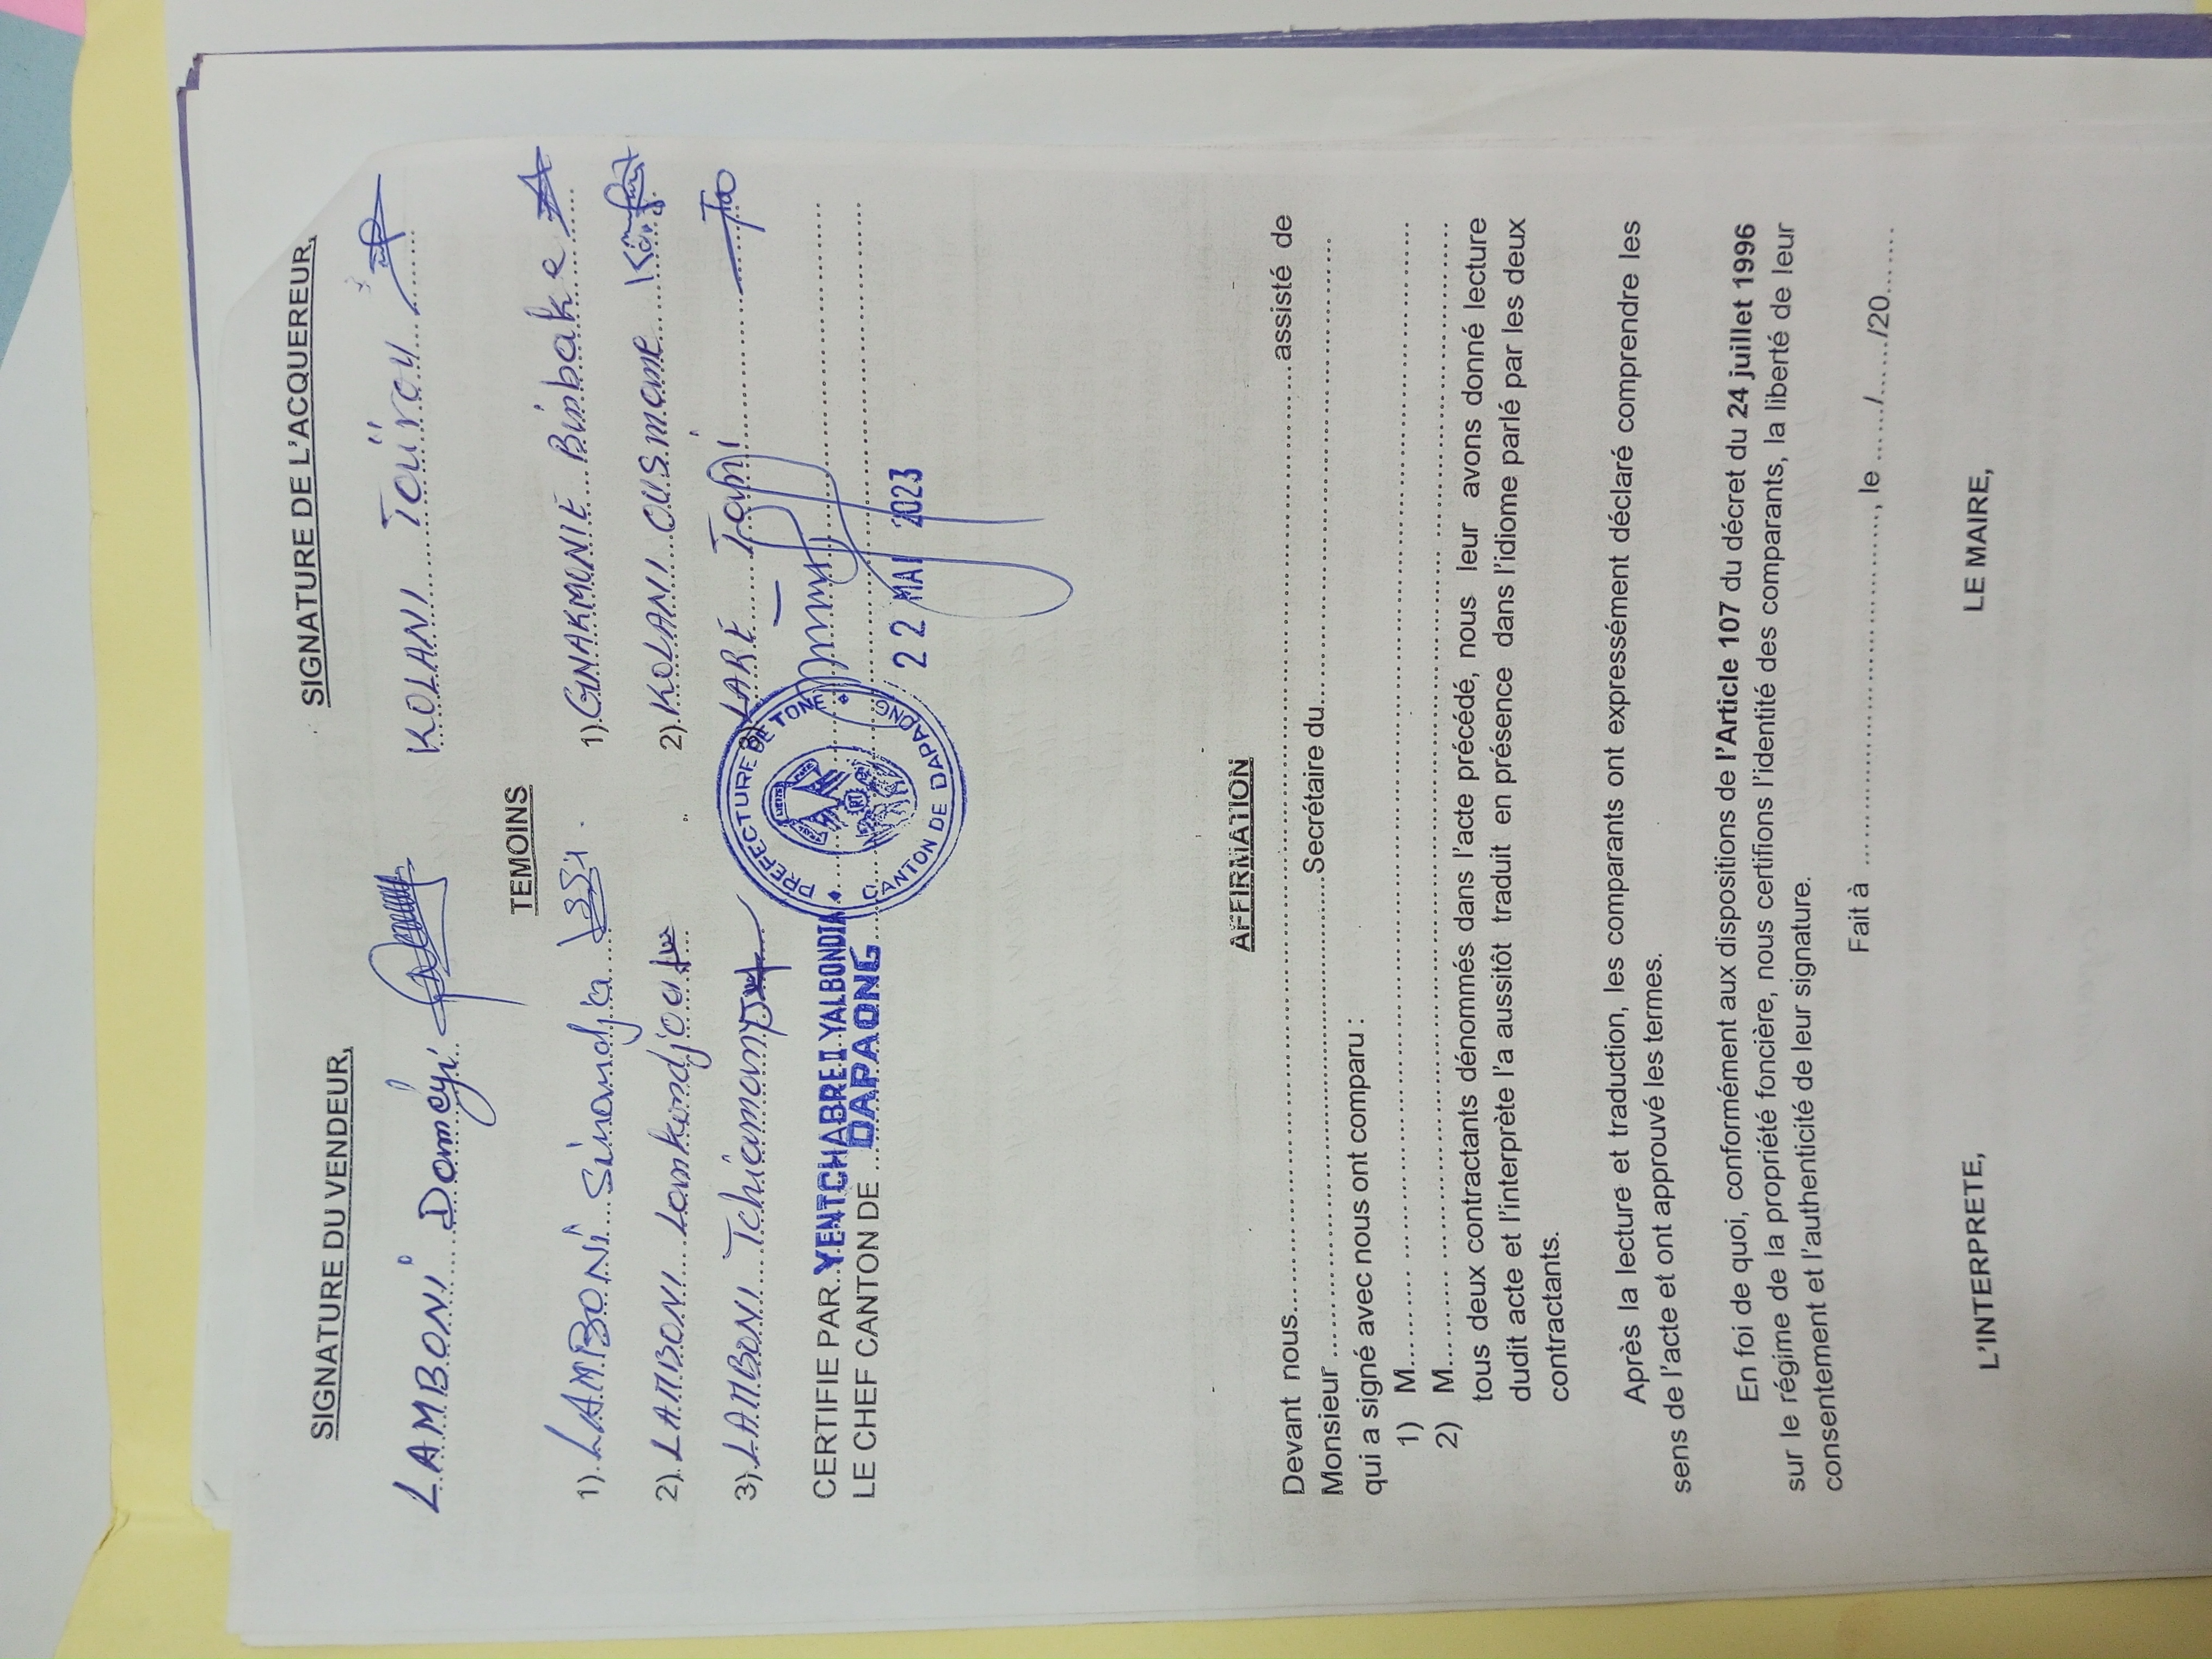 SIGNATURE DU VENDEUR, SIGNATURE DE L'ACQUEREUR,
LAMBONI Doméyi KOLANI Touïrou
TEMOINS
1) LAMBONI Sinandja 1) GNAKMONIE Bimbake
2) LAMBONI Lankondjoa 2) KOLANI OUSmane
3) LAMBONI Tchiamany 3) LARE Tani
CERTIFIE PAR YENTCHABRE II YALBONDJA
LE CHEF CANTON DE DAPAONG
PREFECTURE DE TONE
CANTON DE DAPAONG
22 MAI 2023
AFFIRMATION
Devant nous..........assisté de
Monsieur ..........Secrétaire du..........
qui a signé avec nous ont comparu :
1) M..........
2) M..........
tous deux contractants dénommés dans l'acte précédé, nous leur avons donné lecture
dudit acte et l'interprète l'a aussitôt traduit en présence dans l'idiome parlé par les deux
contractants.
Après la lecture et traduction, les comparants ont expressément déclaré comprendre les
sens de l'acte et ont approuvé les termes.
En foi de quoi, conformément aux dispositions de l'Article 107 du décret du 24 juillet 1996
sur le régime de la propriété foncière, nous certifions l'identité des comparants, la liberté de leur
consentement et l'authenticité de leur signature.
Fait à .........., le ....../....../20......
L'INTERPRETE, LE MAIRE,